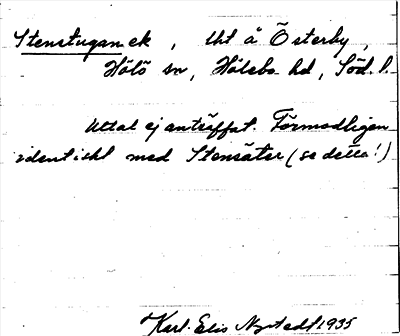 Stenstugan ek, lht å Österby,
Hölö sn, Hölebo hd, Söd. l.
Uttal ej anträffat. Förmodligen
identiskt med Stensäter (se detta!)
Karl-Elis Nystedt 1935